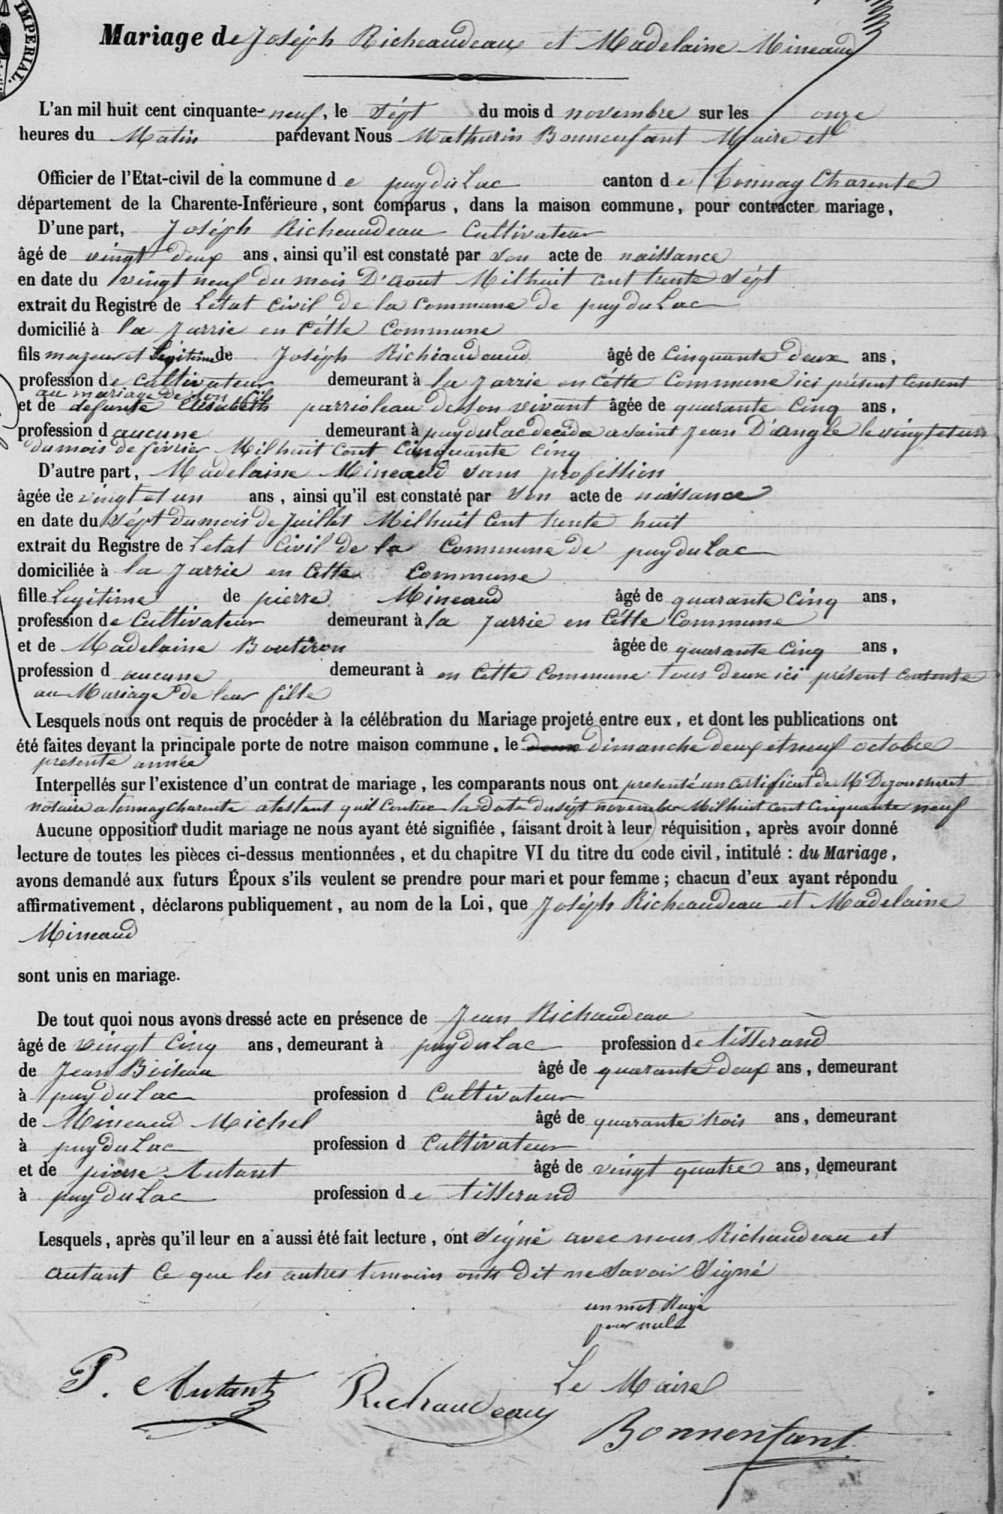 IMPERIAL.
Mariage de Joséph Richeaudeaux et Madelaine Mineaud
L'an mil huit cent cinquante-neuf, le sépt du mois d novembre sur les onze
heures du Matin pardevant Nous Mathurin Bonnenfant Maire et
Officier de l'Etat-civil de la commune de puyduLac canton de Tonnay Charente
département de la Charente-Inférieure, sont comparus, dans la maison commune, pour contracter mariage,
D'une part, Joséph Richeaudeau Cultivateur
âgé de vingt deux ans, ainsi qu'il est constaté par son acte de naissance
en date du vingt neuf du mois D'aout Milhuit cent trente sépt
extrait du Registre de Létat civil de la commune de puyduLac
domicilié à la Jarrie en Cétte Commune
fils majeur et légitime de Joséph Richiaudeaud âgé de Cinquante deux ans,
profession de Cultivateur demeurant à la Jarrie en Cétte Commune ici présent Consent
au mariage de son fils
et de défunte Elisabeth parrioleau de son vivant âgée de quarante Cinq ans,
profession d aucune demeurant à puyduLac décédée a saint Jean D'angle le vingt et un
du mois de février Milhuit Cent Cinquante cinq
D'autre part, Madelaine Mineaud sans proféssion
âgée de vingt et un ans, ainsi qu'il est constaté par son acte de naissance
en date du sépt du mois de Juillet Milhuit Cent trente huit
extrait du Registre de Létat Civil de la Commune de puyduLac
domiciliée à la Jarrie en Cétte Commune
fille Legitime de pierre Mineaud âgé de quarante Cinq ans,
profession de Cultivateur demeurant à la Jarrie en Cétte Commune
et de Madelaine Boutiron âgée de quarante Cinq ans,
profession d aucune demeurant à en Cétte Commune tous deux ici présent consente
au Mariage de leur fille
Lesquels nous ont requis de procéder à la célébration du Mariage projeté entre eux, et dont les publications ont
été faites devant la principale porte de notre maison commune, le dimanche deux et neuf octobre
présente année
Interpellés sur l'existence d'un contrat de mariage, les comparants nous ont présenté un certificat de Mr
notaire a tonnay charente atestant qu'il Contrer la date du sépt novembre Milhuit Cent Cinquante neuf
Aucune opposition dudit mariage ne nous ayant été signifiée, faisant droit à leur réquisition, après avoir donné
lecture de toutes les pièces ci-dessus mentionnées, et du chapitre VI du titre du code civil, intitulé : du Mariage,
avons demandé aux futurs Époux s'ils veulent se prendre pour mari et pour femme ; chacun d'eux ayant répondu
affirmativement, déclarons publiquement, au nom de la Loi, que Joséph Richeaudeau et Madelaine
Mineaud
sont unis en mariage.
De tout quoi nous avons dressé acte en présence de Jean Richaudeau
âgé de vingt Cinq ans, demeurant à puyduLac profession de tisserand
de Jean Boileau âgé de quarante deux ans, demeurant
à puyduLac profession d Cultivateur
de Mineaud Michel âgé de quarante trois ans, demeurant
à puyduLac profession d Cultivateur
et de pierre Autant âgé de vingt quatre ans, demeurant
à puyduLac profession de tisserand
Lesquels, après qu'il leur en a aussi été fait lecture, ont signé avec nous Richaudeau et
autant Ce que les autres temoins onts dit ne savoir signé
un mot Rayé
pour nulle
P. Autant Richaudeau Le Maire
Bonnenfant